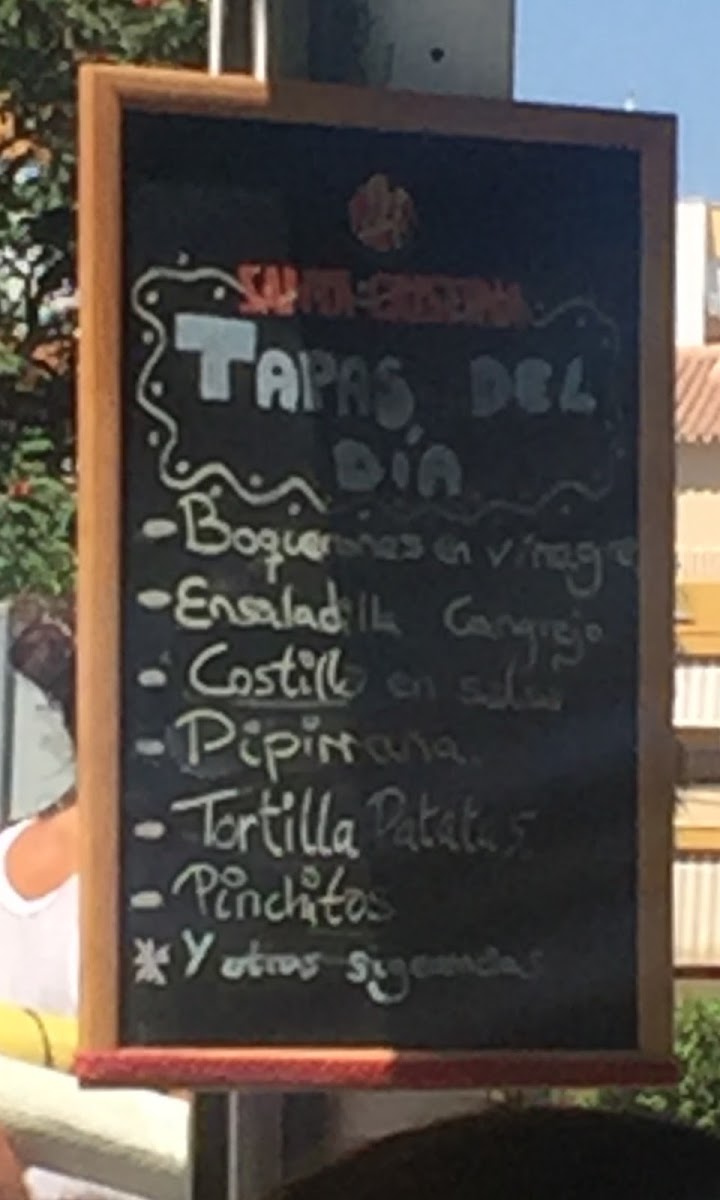 SANTA CRISTINA
TAPAS DEL
DÍA
- Boquerones en vinagre
- Ensaladilla Cangrejo
- Costilla en salsa
- Pipirrana.
- Tortilla Patatas.
- Pinchitos
* Y otras sigerencias